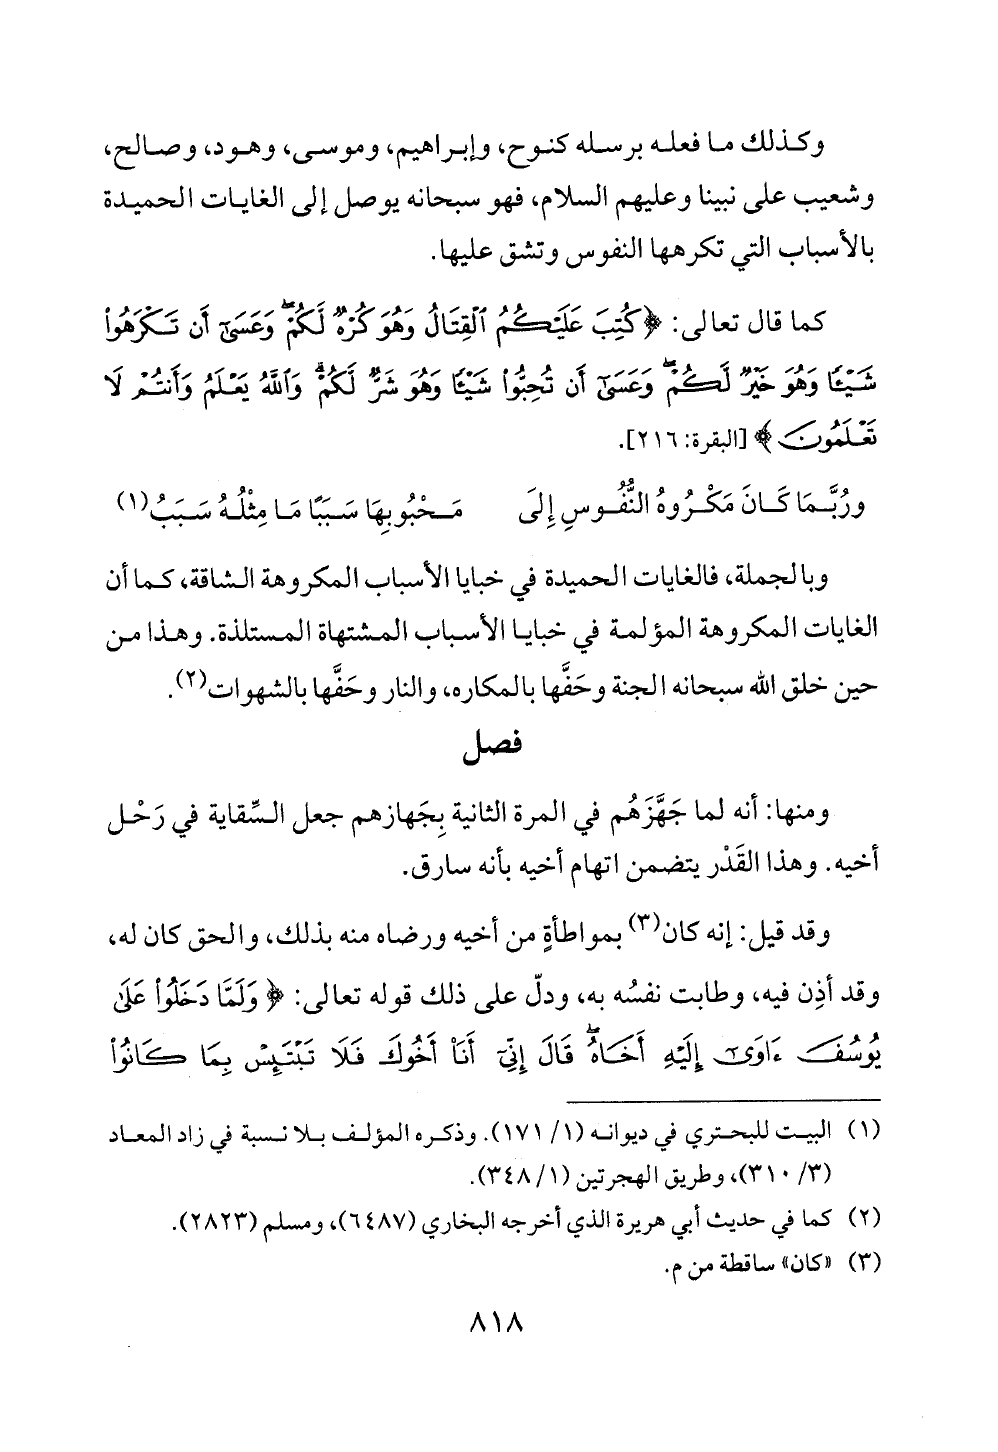 وكذلك ما فعله برسله كنوح، وإبراهيم، وموسى، وهود، وصالح،
وشعيب على نبينا وعليهم السلام، فهو سبحانه يوصل إلى الغايات الحميدة
بالأسباب التي تكرهها النفوس وتشق عليها.
كما قال تعالى: ﴿كُتِبَ عَلَيْكُمُ ٱلْقِتَالُ وَهُوَ كُرْهٌ لَّكُمْ ۖ وَعَسَىٰٓ أَن تَكْرَهُوا۟
شَيْـًٔا وَهُوَ خَيْرٌ لَّكُمْ ۖ وَعَسَىٰٓ أَن تُحِبُّوا۟ شَيْـًٔا وَهُوَ شَرٌّ لَّكُمْ ۗ وَٱللَّهُ يَعْلَمُ وَأَنتُمْ لَا
تَعْلَمُونَ﴾ [البقرة: ٢١٦].
ورُبَّمَا كَانَ مَكْرُوهُ النُّفُوسِ إِلَى مَحْبُوبِهَا سَبَبًا مَا مِثْلُهُ سَبَبُ(١)
وبالجملة، فالغايات الحميدة في خبايا الأسباب المكروهة الشاقة، كما أن
الغايات المكروهة المؤلمة في خبايا الأسباب المشتهاة المستلذة. وهذا من
حين خلق الله سبحانه الجنة وحَفَّها بالمكاره، والنار وحَفَّها بالشهوات(٢).
فصل
ومنها: أنه لما جَهَّزَهُم في المرة الثانية بِجَهازهم جعل السِّقاية في رَحْل
أخيه. وهذا القَدْر يتضمن اتهام أخيه بأنه سارق.
وقد قيل: إنه كان(٣) بمواطأةٍ من أخيه ورضاه منه بذلك، والحق كان له،
وقد أذِن فيه، وطابت نفسُه به، ودلّ على ذلك قوله تعالى: ﴿وَلَمَّا دَخَلُوا۟ عَلَىٰ
يُوسُفَ ءَاوَىٰٓ إِلَيْهِ أَخَاهُ ۖ قَالَ إِنِّىٓ أَنَا۠ أَخُوكَ فَلَا تَبْتَئِسْ بِمَا كَانُوا۟
(١) البيت للبحتري في ديوانه (١/ ١٧١). وذكره المؤلف بلا نسبة في زاد المعاد
(٣/ ٣١٠)، وطريق الهجرتين (١/ ٣٤٨).
(٢) كما في حديث أبي هريرة الذي أخرجه البخاري (٦٤٨٧)، ومسلم (٢٨٢٣).
(٣) «كان» ساقطة من م.
٨١٨